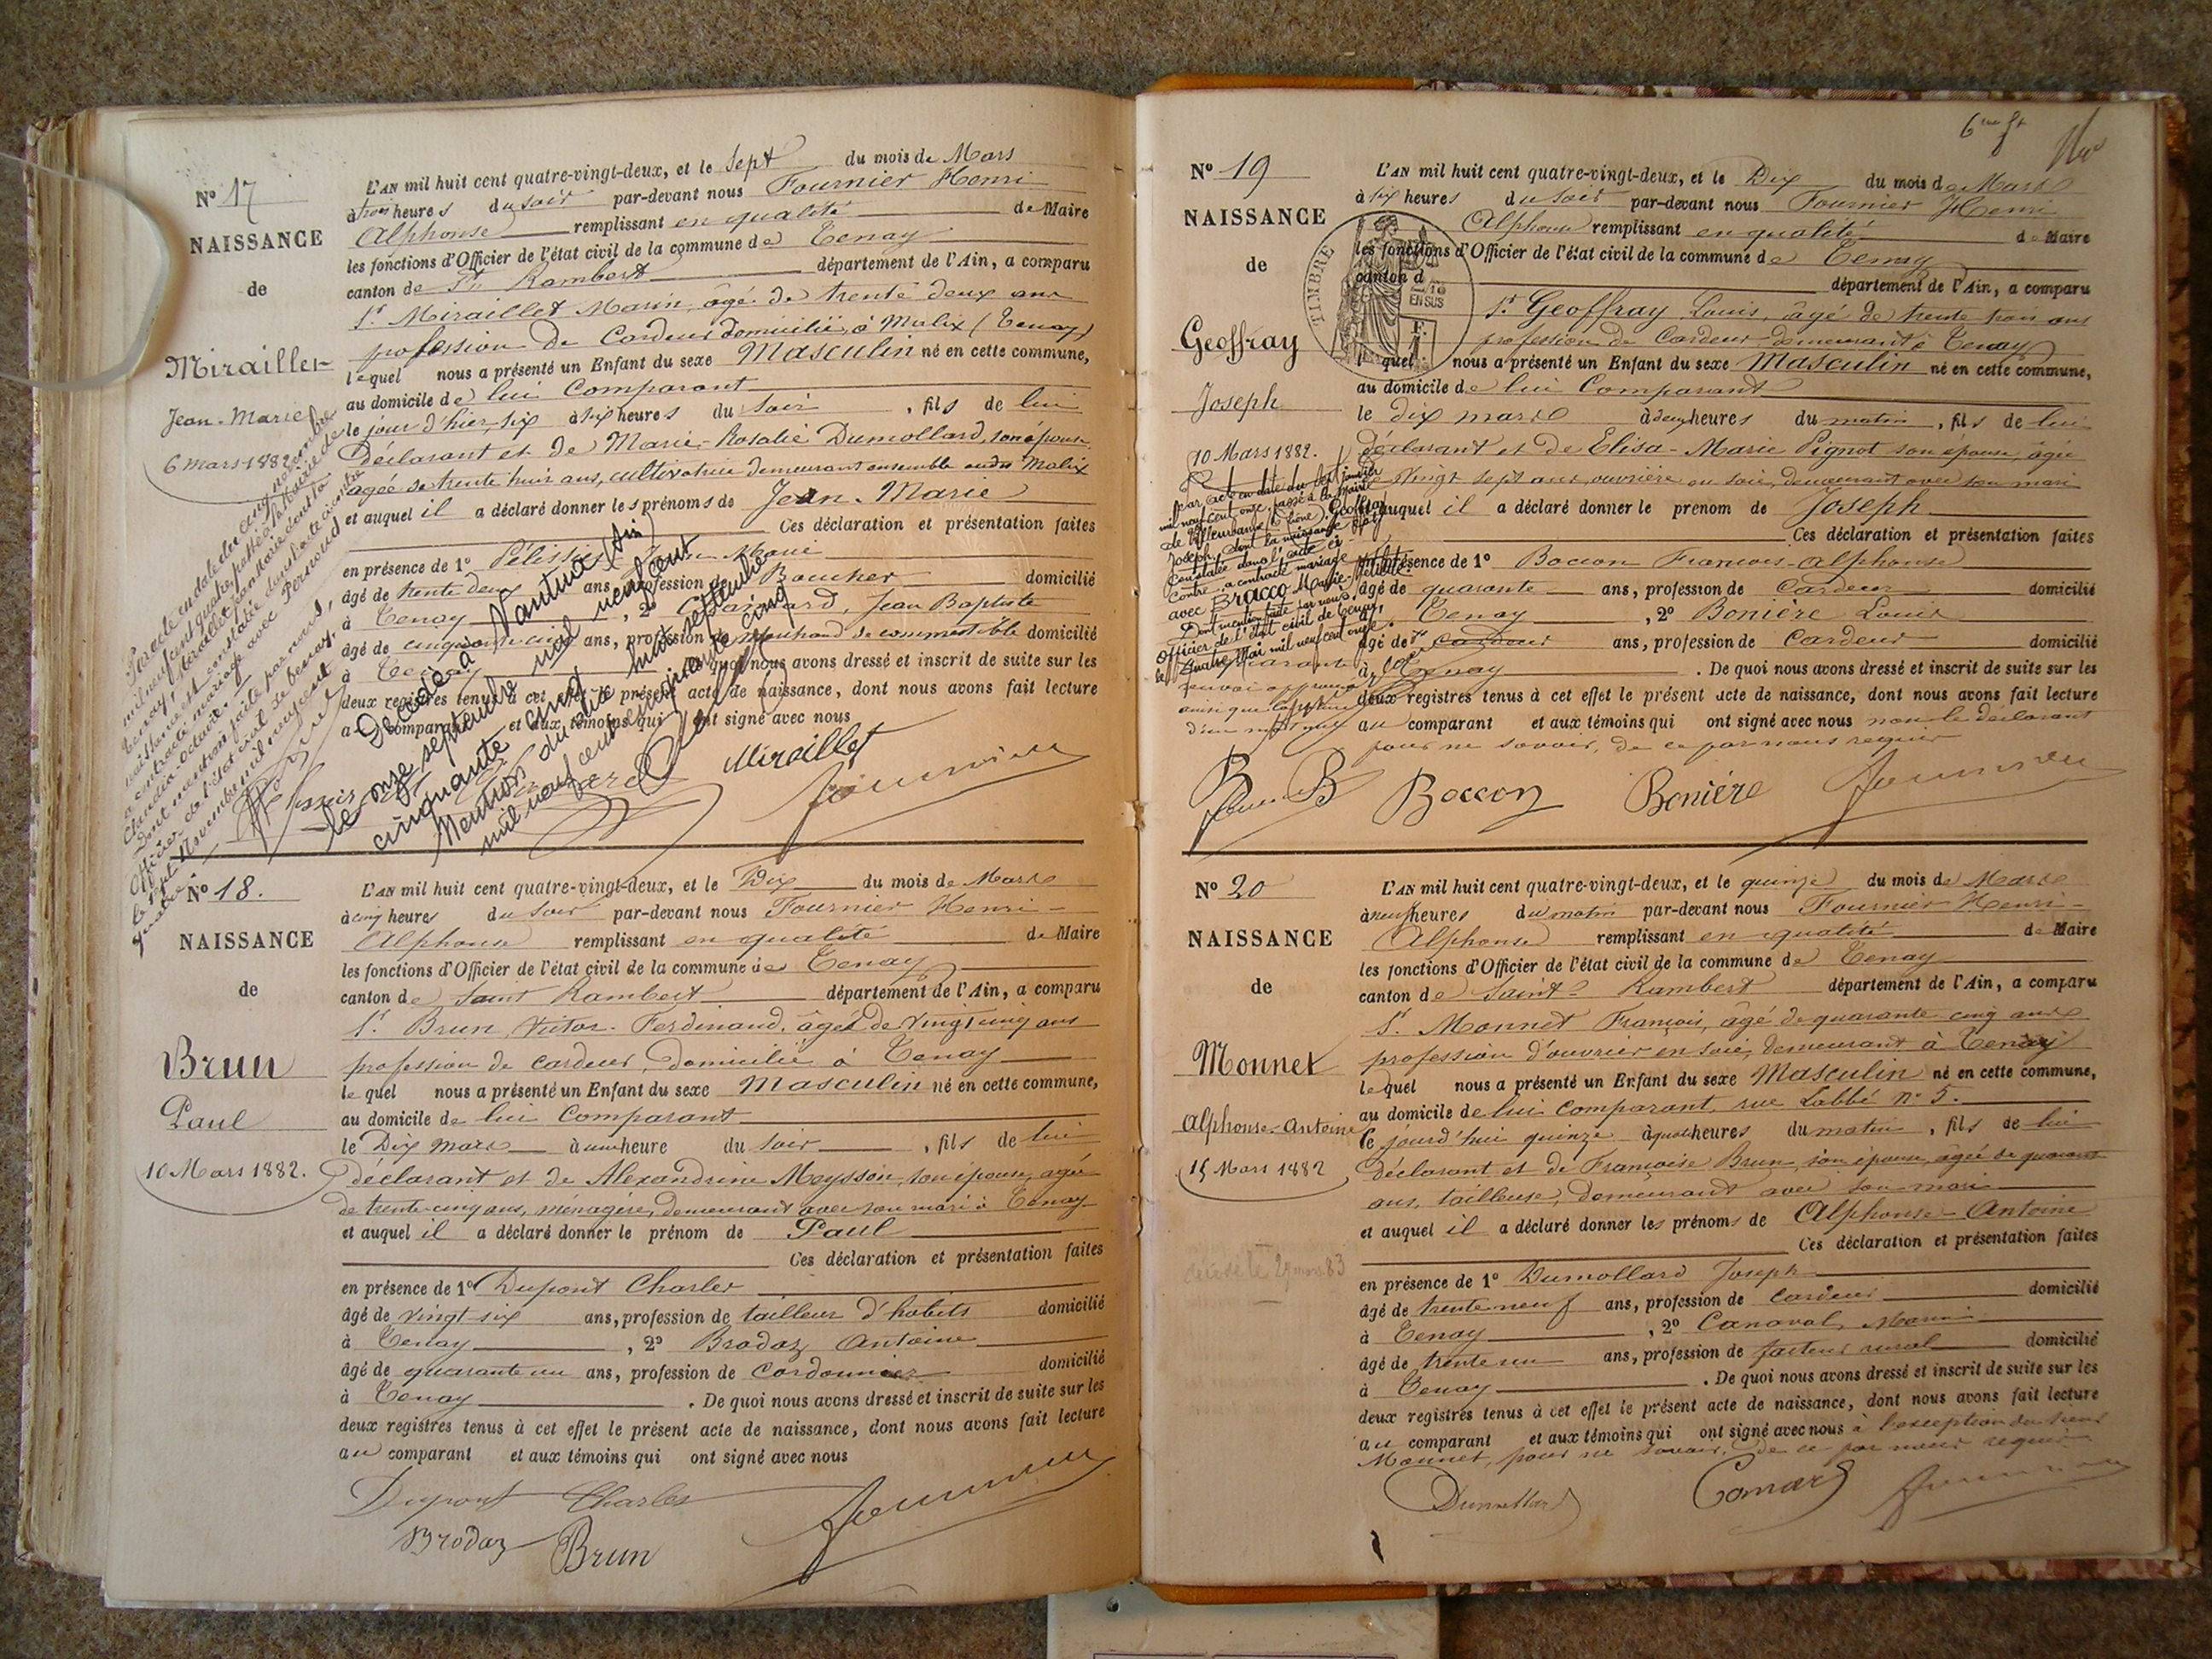 N° 17
NAISSANCE
de
Miraillet
Jean-Marie
6 mars 1882
L'AN mil huit cent quatre-vingt-deux, et le Sept du mois de Mars
à trois heures du soir par-devant nous Fournier Henri
Alphonse remplissant en qualité de Maire
les fonctions d'Officier de l'état civil de la commune de Tenay
canton de St Rambert département de l'Ain, a comparu
Sr Miraillet Marin, âgé de trente deux ans
profession de Cardeur domicilié à Malix (Tenay)
lequel nous a présenté un Enfant du sexe Masculin né en cette commune,
au domicile de lui Comparant
le jour d'hier, six à six heures du soir, fils de lui
Déclarant et de Marie-Rosalie Dumollard, son épouse
agée de trente huit ans, cultivatrice demeurant ensemble audit Malix
et auquel il a déclaré donner les prénoms de Jean-Marie
Ces déclaration et présentation faites
en présence de 1° Pélissier Marie
âgé de trente deux ans, profession de Boucher domicilié
à Tenay, 2° Jean Baptiste
âgé de cinquante cinq ans, profession de Marchand de comestible domicilié
à Tenay quoi nous avons dressé et inscrit de suite sur les
deux registres tenus à cet effet le présent acte de naissance, dont nous avons fait lecture
au comparant et aux témoins qui ont signé avec nous
Décédé à Nantua (Ain)
le onze septembre mil neuf cent
cinquante cinq
Mention du dix huit septembre
mil neuf cent cinquante cinq
Miraillet
Fournier
Par acte en date du cinq novembre
mil neuf cent quatre, passé à la Mairie de
Tenay, Miraillet Jean Marie dont la
naissance est constatée dans l'acte ci-contre
a contracté mariage avec Persoud
Claudia-Octavie.
Dont mention faite par nous,
Officier de l'état civil de Tenay,
le sept Novembre mil neuf cent
quatre.
N° 18.
NAISSANCE
de
Brun
Paul
10 Mars 1882.
L'AN mil huit cent quatre-vingt-deux, et le Dix du mois de Mars
à cinq heures du soir par-devant nous Fournier Henri-
Alphonse remplissant en qualité de Maire
les fonctions d'Officier de l'état civil de la commune de Tenay
canton de Saint Rambert département de l'Ain, a comparu
Sr Brun, Victor-Ferdinand, âgé de vingt cinq ans
profession de cardeur, domicilié à Tenay
lequel nous a présenté un Enfant du sexe Masculin né en cette commune,
au domicile de lui Comparant
le Dix mars à une heure du soir, fils de lui
déclarant et de Alexandrine Meysson, son épouse, agée
de trente-cinq ans, ménagère, demeurant avec son mari à Tenay
et auquel il a déclaré donner le prénom de Paul
Ces déclaration et présentation faites
en présence de 1° Dupont Charles
âgé de vingt-six ans, profession de tailleur d'habits domicilié
à Tenay, 2° Brodaz Antoine
âgé de quarante un ans, profession de Cordonnier domicilié
à Tenay. De quoi nous avons dressé et inscrit de suite sur les
deux registres tenus à cet effet le présent acte de naissance, dont nous avons fait lecture
au comparant et aux témoins qui ont signé avec nous
Dupont Charles
Brodaz Brun
Fournier
N° 19
NAISSANCE
de
Geoffray
Joseph
10 Mars 1882.
L'AN mil huit cent quatre-vingt-deux, et le Dix du mois de Mars
à six heures du soir par-devant nous Fournier Henri
Alphonse remplissant en qualité de Maire
les fonctions d'Officier de l'état civil de la commune de Tenay
canton d département de l'Ain, a comparu
TIMBRE
EN SUS
Sr Geoffray Louis, âgé de trente trois ans
profession de Cardeur demeurant à Tenay
lequel nous a présenté un Enfant du sexe Masculin né en cette commune,
au domicile de lui Comparant
le dix mars à deux heures du matin, fils de lui
déclarant et de Elisa-Marie Pignot son épouse, agée
de vingt sept ans, ouvrière en soie, demeurant avec son mari
auquel il a déclaré donner le prénom de Joseph
Ces déclaration et présentation faites
en présence de 1° Boccon François-Alphonse
âgé de quarante ans, profession de Cardeur domicilié
à Tenay, 2° Bonière Louis
âgé de ans, profession de Cardeur domicilié
à Tenay. De quoi nous avons dressé et inscrit de suite sur les
deux registres tenus à cet effet le présent acte de naissance, dont nous avons fait lecture
au comparant et aux témoins qui ont signé avec nous non le déclarant
pour ne savoir, de ce par nous requis
par acte en date du sept janvier
mil neuf cent onze, passé à la Mairie
de Villeurbanne (Rhône), Geoffray
Joseph, dont la naissance est
constatée dans l'acte ci-
contre, a contracté mariage
avec Bracco Marie
Dont mention faite par nous,
Officier de l'état civil de Tenay,
le quatre Mai mil neuf cent onze.
Boccon Bonière Fournier
N° 20
NAISSANCE
de
Monnet
Alphonse-Antoine
15 Mars 1882
L'AN mil huit cent quatre-vingt-deux, et le quinze du mois de Mars
à neuf heures du matin par-devant nous Fournier Henri-
Alphonse remplissant en qualité de Maire
les fonctions d'Officier de l'état civil de la commune de Tenay
canton de Saint-Rambert département de l'Ain, a comparu
Sr Monnet François, âgé de quarante cinq ans
profession d'ouvrier en soie, demeurant à Tenay
lequel nous a présenté un Enfant du sexe Masculin né en cette commune,
au domicile de lui comparant, rue Labbé n° 5.
le jourd'hui quinze à quatre heures du matin, fils de lui
déclarant et de Françoise Brun, son épouse, agée de quarante
ans, tailleuse, demeurant avec son mari
et auquel il a déclaré donner les prénoms de Alphonse-Antoine
Ces déclaration et présentation faites
décédé le 29 mars 83
en présence de 1° Dumollard Joseph
âgé de trente neuf ans, profession de Cardeur domicilié
à Tenay, 2° Canaval Marin
âgé de trente un ans, profession de facteur rural domicilié
à Tenay. De quoi nous avons dressé et inscrit de suite sur les
deux registres tenus à cet effet le présent acte de naissance, dont nous avons fait lecture
au comparant et aux témoins qui ont signé avec nous à l'exception du sieur
Monnet, pour ne savoir, de ce par nous requis
Dumollard
Fournier